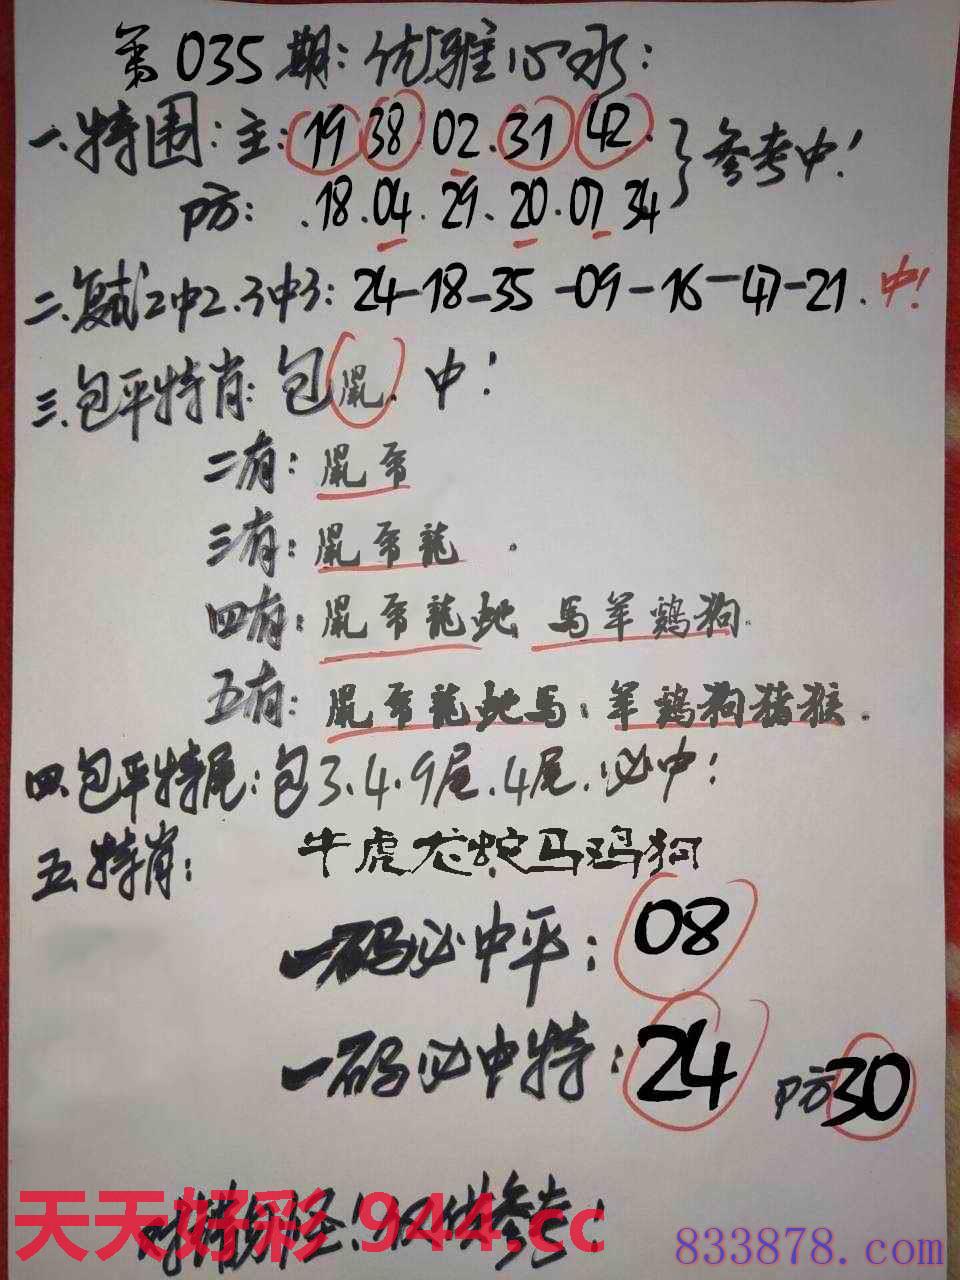 第035期:优雅心水:
一.特围:主:19 38 02.31 42. }参考中!
防:.18.04.29.20.07 34
二.复试2中2.3中3:24-18-35-09-16-47-21.中!
三.包平特肖:包鼠.中!
二有:鼠帝
三有:鼠帝龍.
四有:鼠帝龍虵 馬羊鷄狗.
五有:鼠帝龍虵馬:羊鷄狗猪猴.
四.包平特尾:包3.4.9尾.4尾.必中!
五.特肖:牛虎龙蛇马鸡狗
一码必中平:08
一码必中特:24 防30
对错勿怪!仅供参考!
天天好彩 944.cc
833878.com